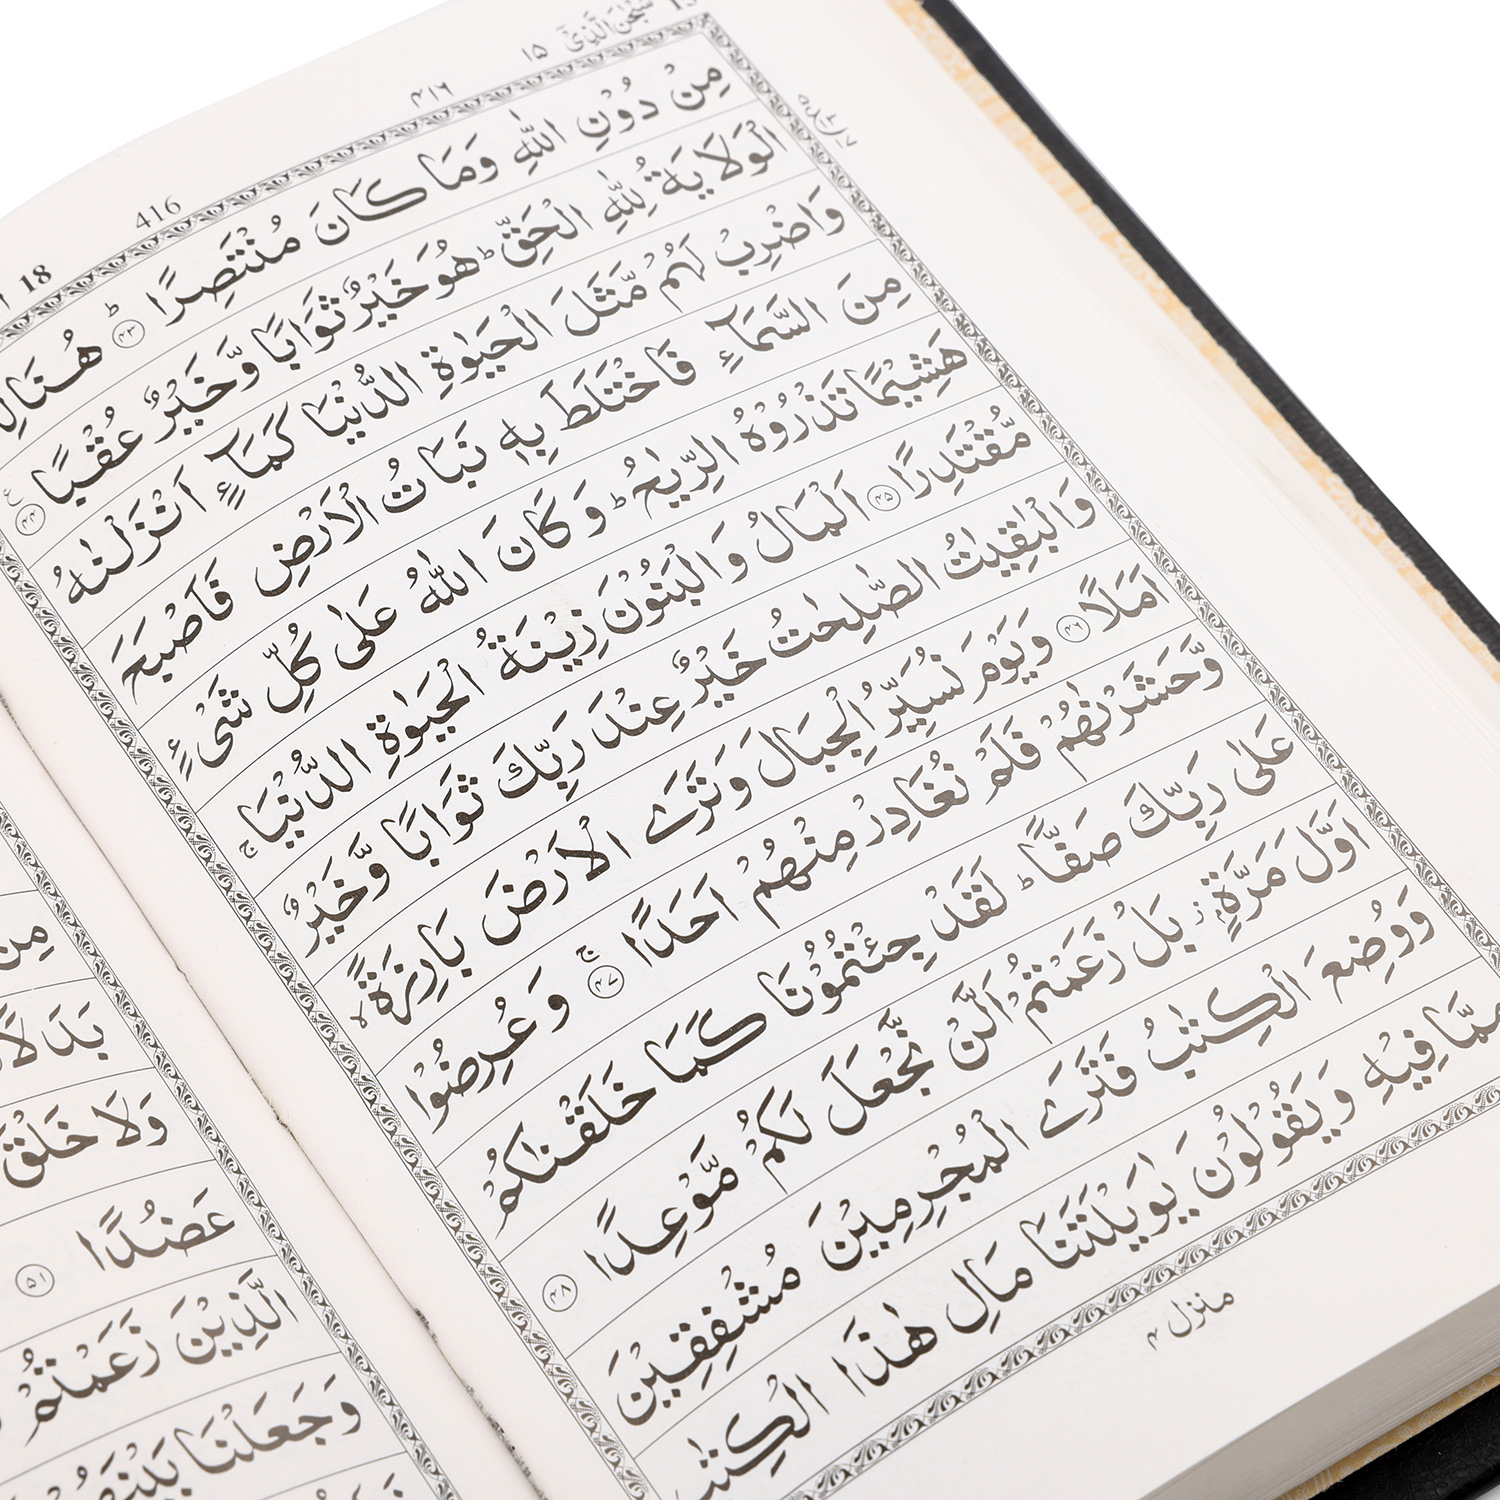 سُبْحٰنَ الَّذِيْٓ ١٥
٤١٦
416
18
مِنْ دُوْنِ اللّٰهِ وَمَا كَانَ مُنْتَصِرًا ؕ ﴿٤٣﴾ هُنَالِ
الْوَلَايَةُ لِلّٰهِ الْحَقِّ ؕ هُوَ خَيْرٌ ثَوَابًا وَّخَيْرٌ عُقْبًا ﴿٤٤﴾ ع
وَاضْرِبْ لَهُمْ مَّثَلَ الْحَيٰوةِ الدُّنْيَا كَمَآءٍ اَنْزَلْنٰهُ
مِنَ السَّمَآءِ فَاخْتَلَطَ بِهٖ نَبَاتُ الْاَرْضِ فَاَصْبَحَ
هَشِيْمًا تَذْرُوْهُ الرِّيٰحُ ؕ وَكَانَ اللّٰهُ عَلٰى كُلِّ شَىْءٍ
مُّقْتَدِرًا ﴿٤٥﴾ اَلْمَالُ وَالْبَنُوْنَ زِيْنَةُ الْحَيٰوةِ الدُّنْيَا ۚ
وَالْبٰقِيٰتُ الصّٰلِحٰتُ خَيْرٌ عِنْدَ رَبِّكَ ثَوَابًا وَّخَيْرٌ
اَمَلًا ﴿٤٦﴾ وَيَوْمَ نُسَيِّرُ الْجِبَالَ وَتَرَى الْاَرْضَ بَارِزَةً ۙ
وَّحَشَرْنٰهُمْ فَلَمْ نُغَادِرْ مِنْهُمْ اَحَدًا ۚ ﴿٤٧﴾ وَعُرِضُوْا
عَلٰى رَبِّكَ صَفًّا ؕ لَقَدْ جِئْتُمُوْنَا كَمَا خَلَقْنٰكُمْ
اَوَّلَ مَرَّةٍۢ ؗ بَلْ زَعَمْتُمْ اَلَّنْ نَّجْعَلَ لَكُمْ مَّوْعِدًا ﴿٤٨﴾
وَوُضِعَ الْكِتٰبُ فَتَرَى الْمُجْرِمِيْنَ مُشْفِقِيْنَ
مِمَّا فِيْهِ وَيَقُوْلُوْنَ يٰوَيْلَتَنَا مَالِ هٰذَا الْكِتٰبِ
منزل ٤
مِن
بَدَلًا
وَلَا خَلْقَ
عَضُدًا ﴿٥١﴾
الَّذِيْنَ زَعَمْتُمْ
وَجَعَلْنَا بَيْنَهُ